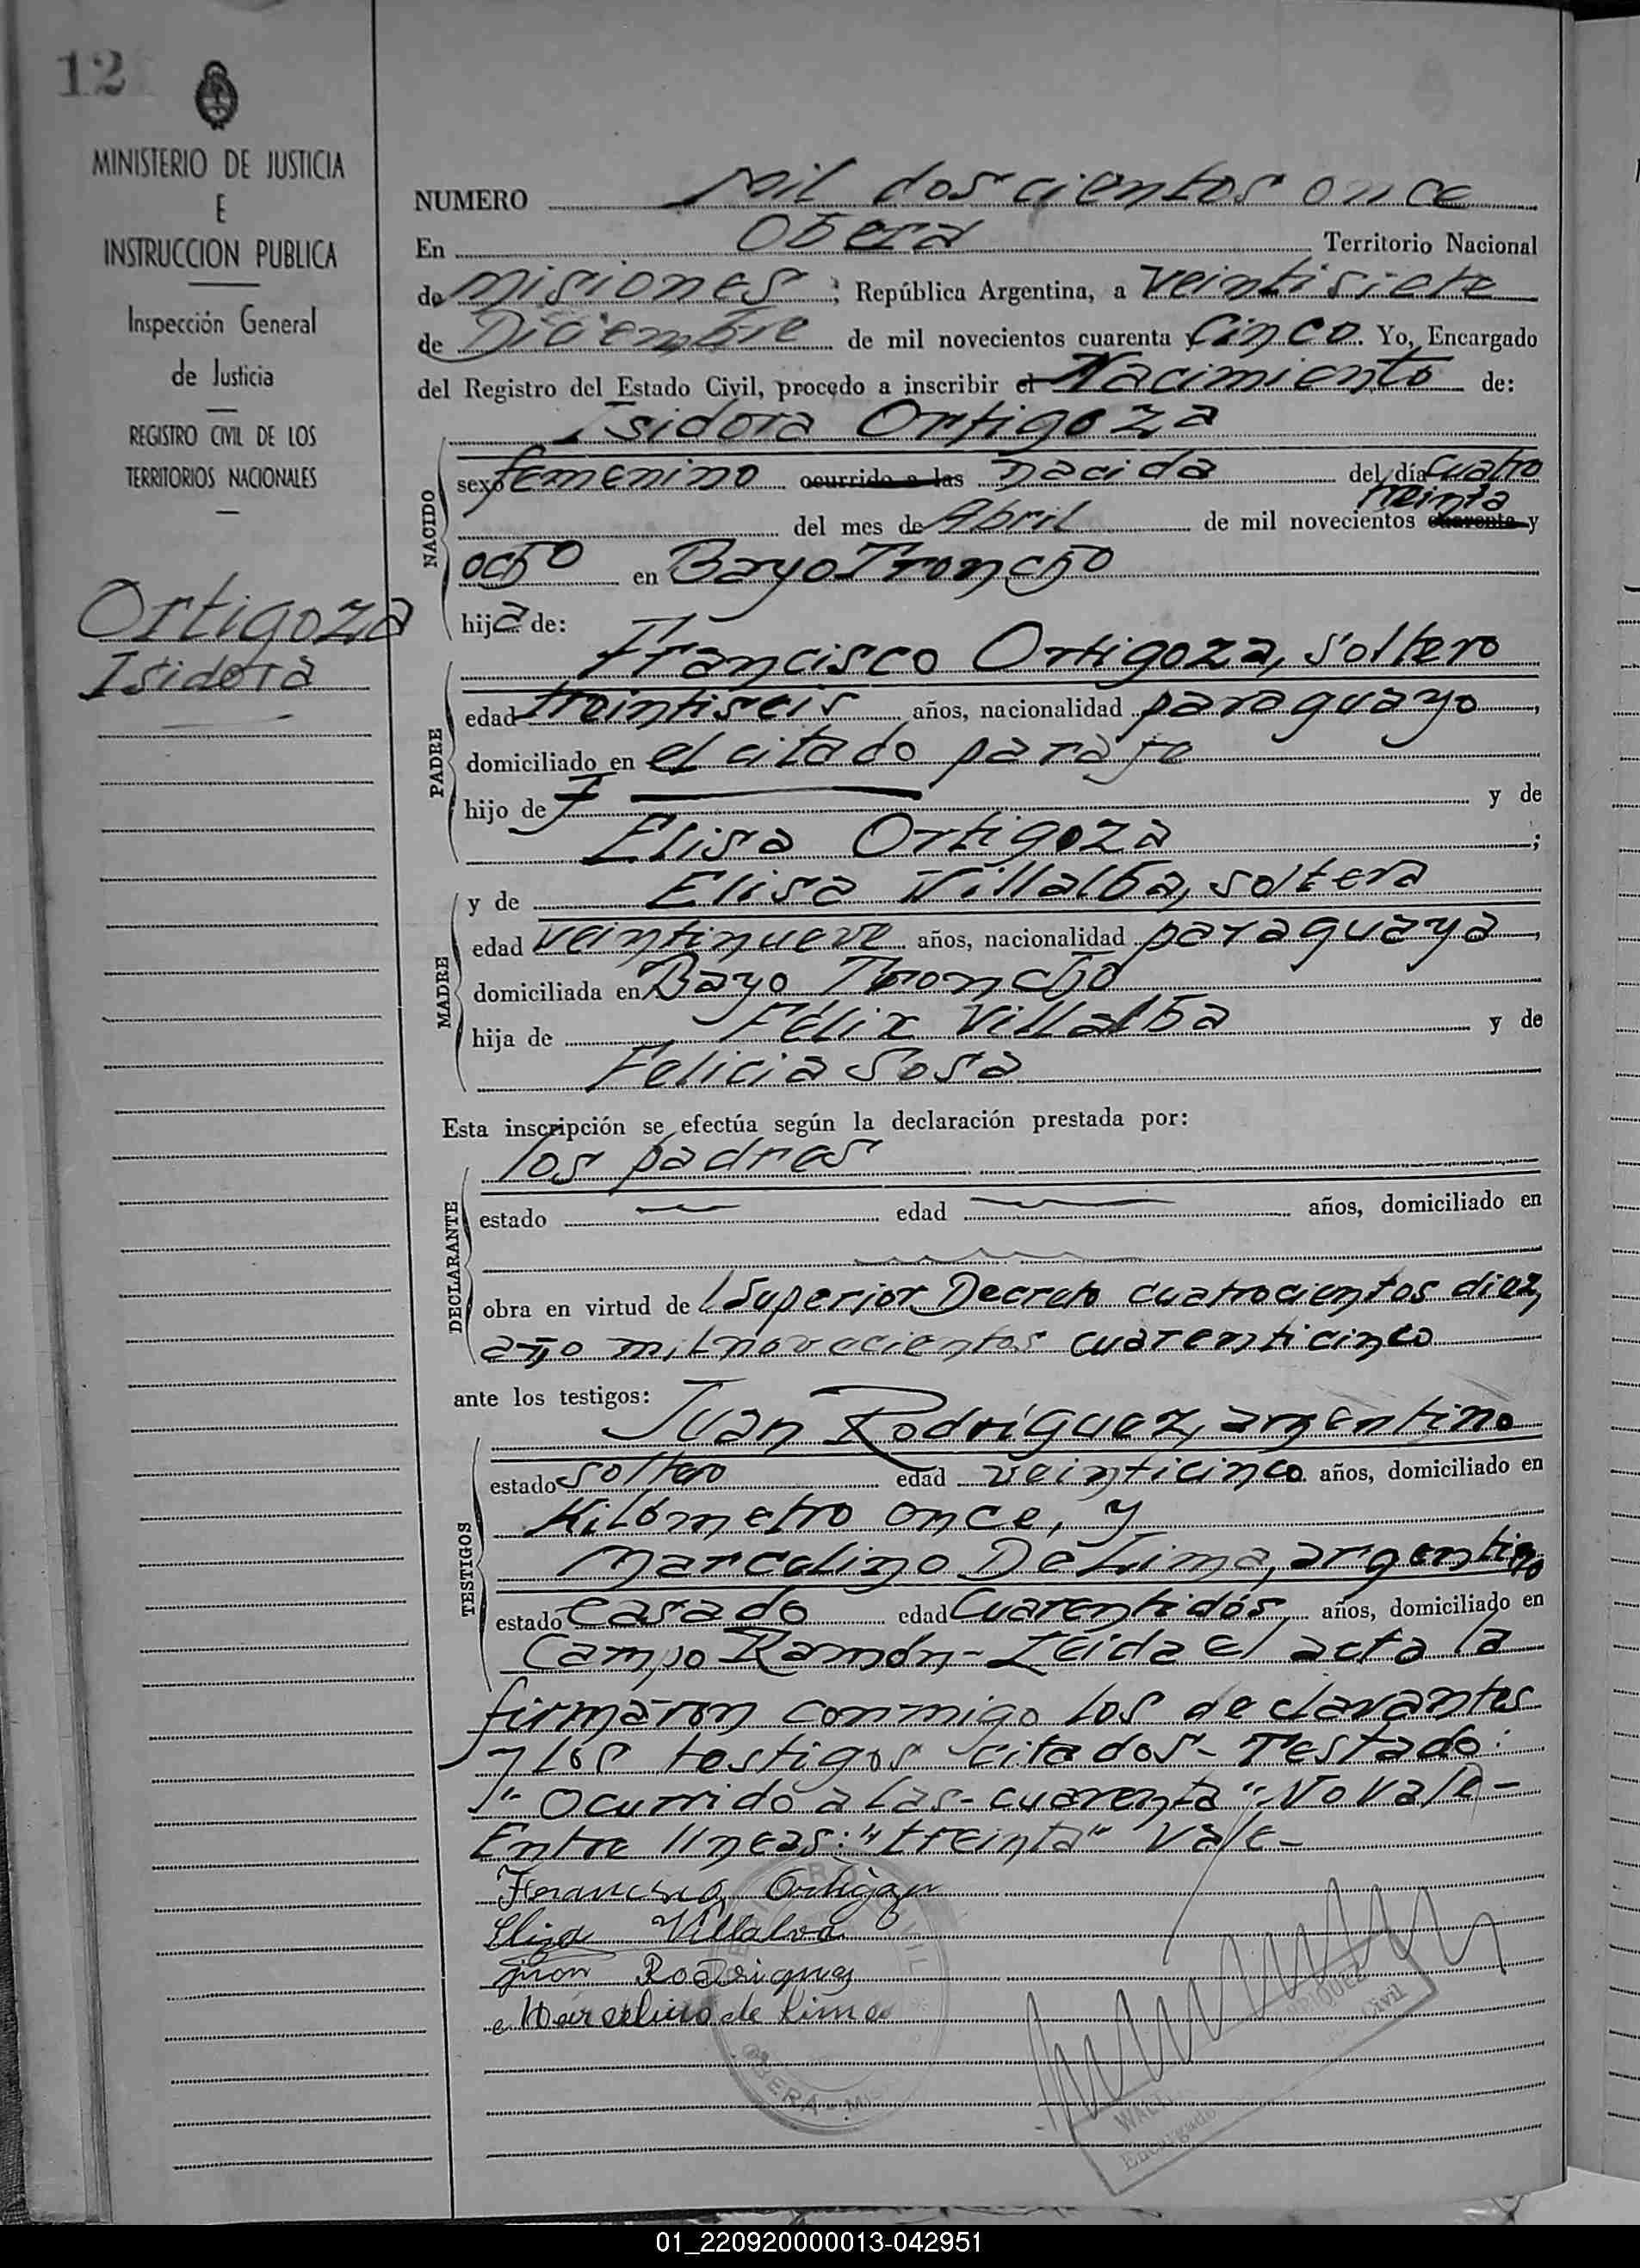 12
MINISTERIO DE JUSTICIA
E
INSTRUCCION PUBLICA
Inspección General
de Justicia
REGISTRO CIVIL DE LOS
TERRITORIOS NACIONALES
Ortigoza
Isidora
NUMERO mil doscientos once
En Oberá Territorio Nacional
de Misiones; República Argentina, a veintisiete
de Diciembre de mil novecientos cuarenta y Cinco. Yo, Encargado
del Registro del Estado Civil, procedo a inscribir el Nacimiento de:
Isidora Ortigoza
NACIDO
sexo femenino ocurrido a las nacida del día cuatro
treinta
del mes de Abril de mil novecientos cuarenta y
ocho en Bayo Troncho
hija de:
Francisco Ortigoza, soltero
PADRE
edad treintiseis años, nacionalidad paraguayo,
domiciliado en el citado paraje
hijo de y de
Elisa Ortigoza;
MADRE
y de Elisa Villalba, soltera
edad veintinueve años, nacionalidad paraguaya,
domiciliada en Bayo Troncho
hija de Félix Villalba y de
Felicia Sosa
Esta inscripción se efectúa según la declaración prestada por:
los padres
DECLARANTE
estado edad años, domiciliado en
obra en virtud de Superior Decreto cuatrocientos diez,
año mil novecientos cuarenticinco
ante los testigos:
Juan Rodríguez, argentino
TESTIGOS
estado soltero edad veinticinco años, domiciliado en
Kilómetro once, y
Marcelino De Lima, argentino
estado casado edad Cuarentidós, años, domiciliado en
Campo Ramón- Leída el acta la
firmaron conmigo los declarantes
y los testigos citados- Testado:
"Ocurrido a las- cuarenta" No vale-
Entre líneas: "treinta" Vale-
Francisco Ortigoza
Eliza Villalva
Juan Rodrigues
Marselino de Lima
OBERÁ - MIS
Encargado Civil
01_220920000013-042951